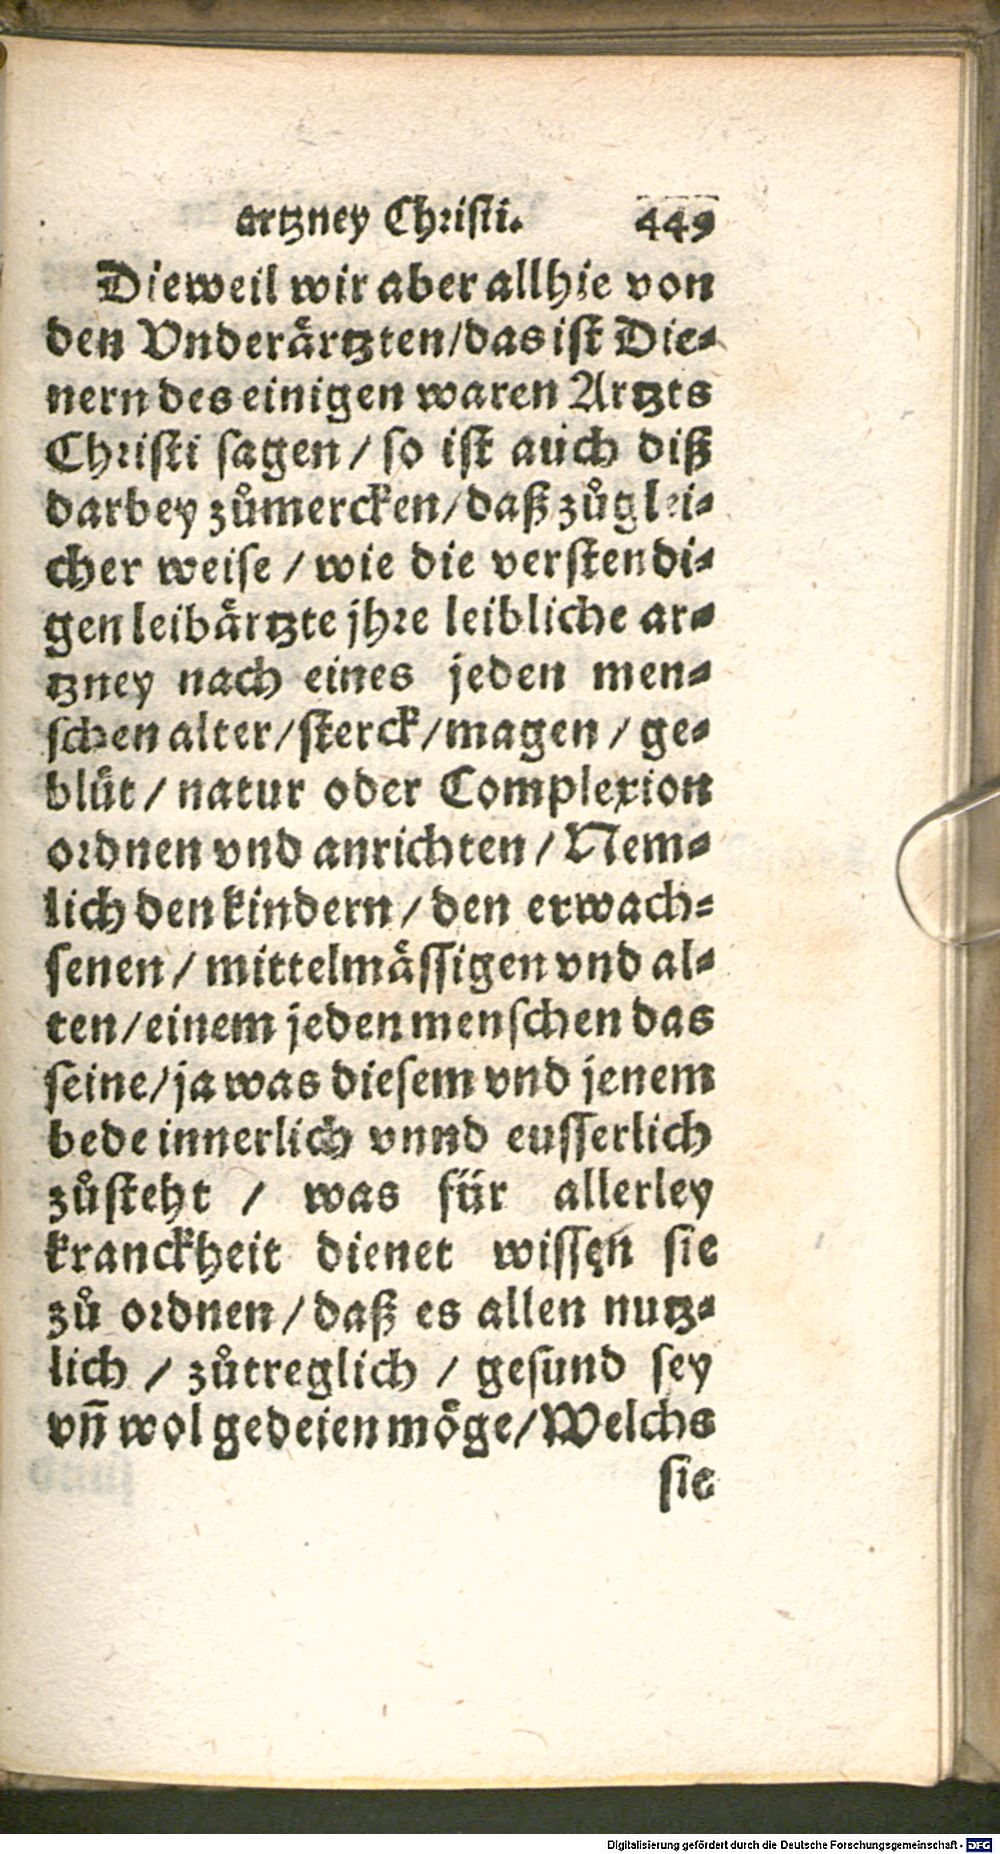 artzney Christi. 449
Dieweil wir aber allhie von
den Vnderaͤrtzten/das ist Die-
nern des einigen waren Artzts
Christi sagen/ so ist auch diß
darbey zůmercken/daß zůglei-
cher weise / wie die verstendi-
gen leibaͤrtzte jhre leibliche ar-
tzney nach eines jeden men-
schen alter/sterck/magen / ge-
bluͤt/ natur oder Complexion
ordnen vnd anrichten / Nem-
lich den kindern / den erwach-
senen / mittelmaͤssigen vnd al-
ten/einem jeden menschen das
seine/ja was diesem vnd jenem
bede innerlich vnnd eusserlich
zůsteht / was für allerley
kranckheit dienet wissen sie
zů ordnen / daß es allen nutz-
lich / zůtreglich / gesund sey
vñ wol gedeien moͤge/Welchs
sie
Digitalisierung gefördert durch die Deutsche Forschungsgemeinschaft - DFG